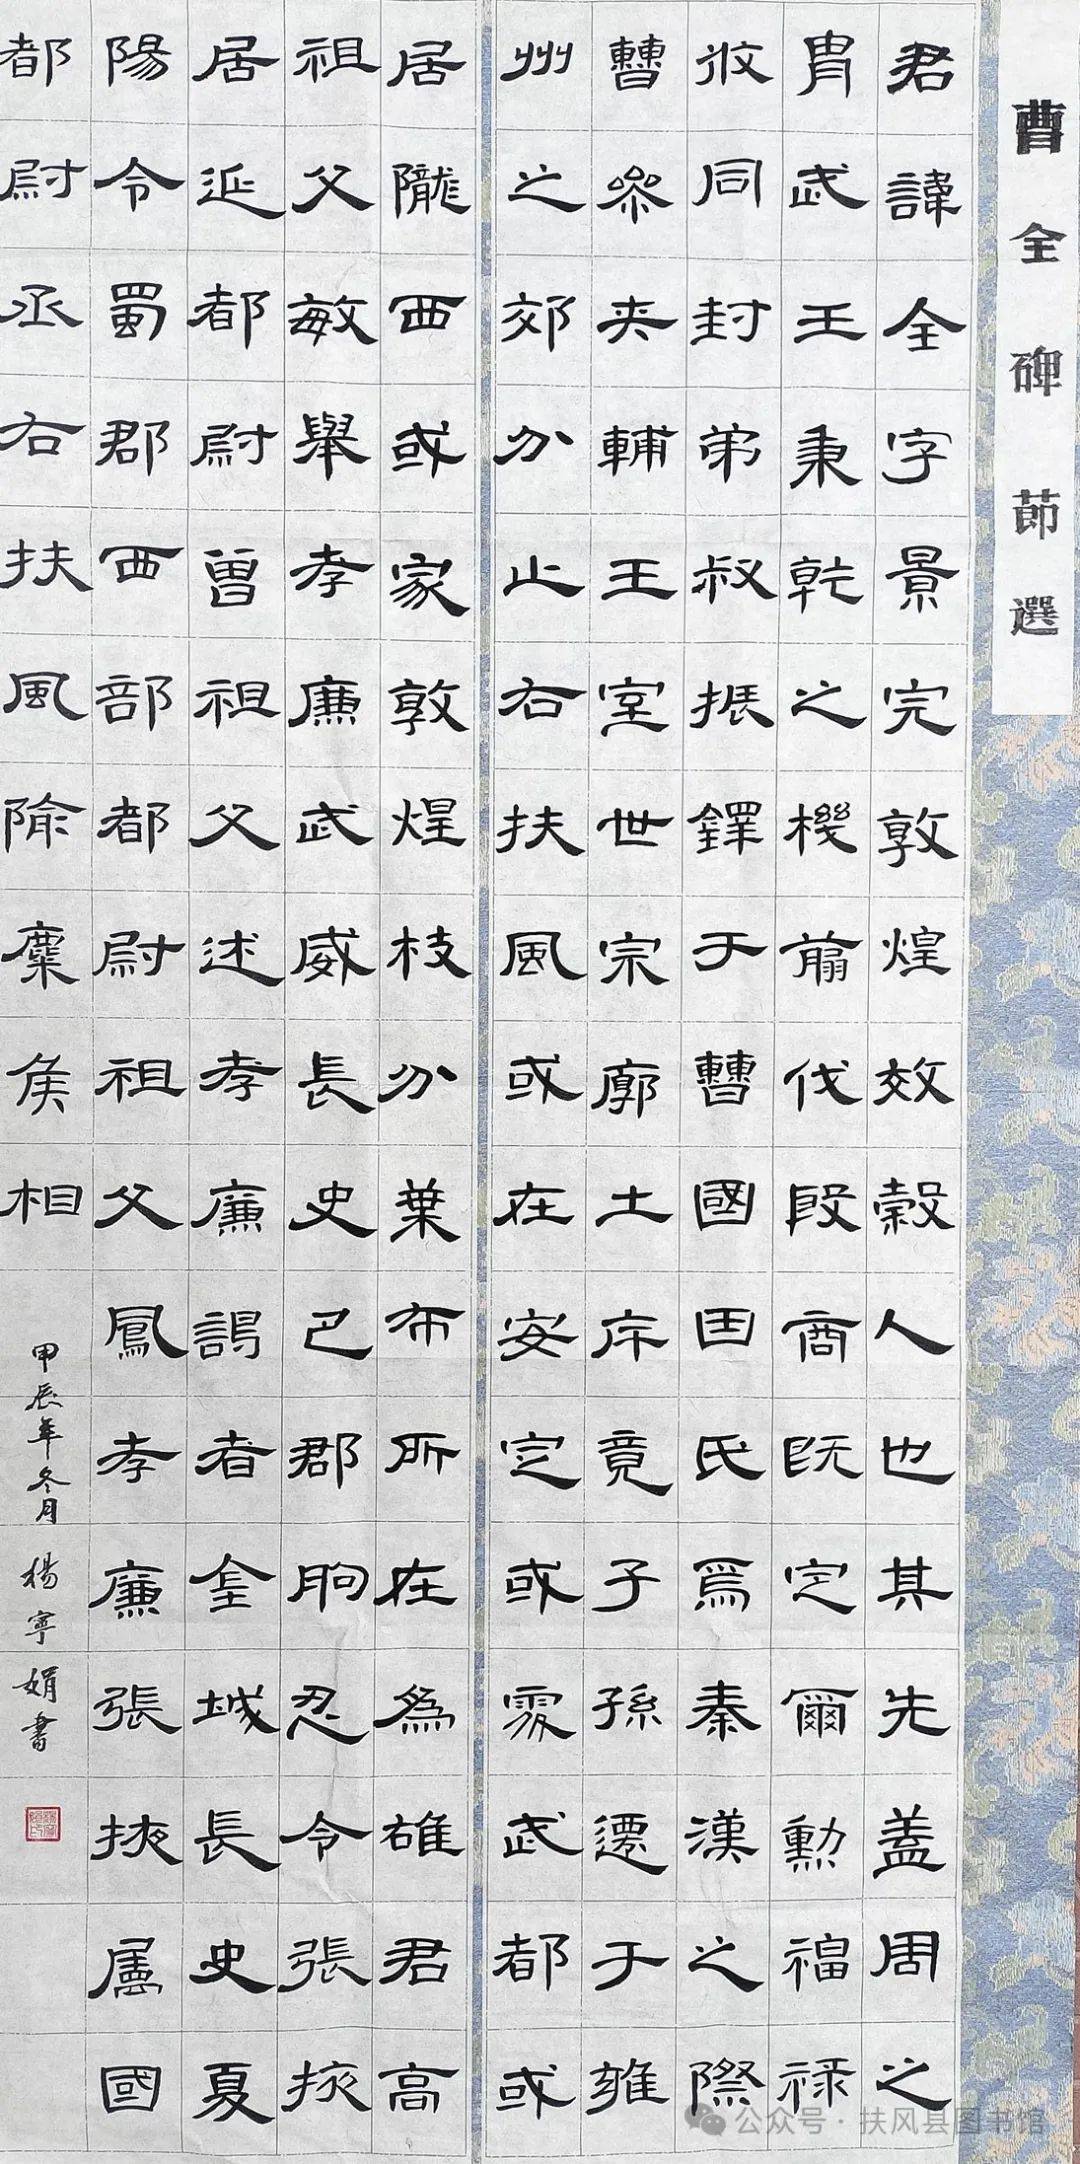 曹全碑節選
君諱全字景完敦煌效穀人也其先蓋周之
胄武王秉乾之機翦伐殷商既定爾勳福祿
攸同封弟叔振鐸于曹國因氏焉秦漢之際
曹參夾輔王室世宗廓土斥竟子孫遷于雍
州之郊分止右扶風或在安定或處武都或
居隴西或家敦煌枝分葉布所在為雄君高
祖父敏舉孝廉武威長史巴郡朐忍令張掖
居延都尉曾祖父述孝廉謁者金城長史夏
陽令蜀郡西部都尉祖父鳳孝廉張掖屬國
都尉丞右扶風隃麋侯相
甲辰年冬月 楊寧娟書
公众号·扶风县图书馆